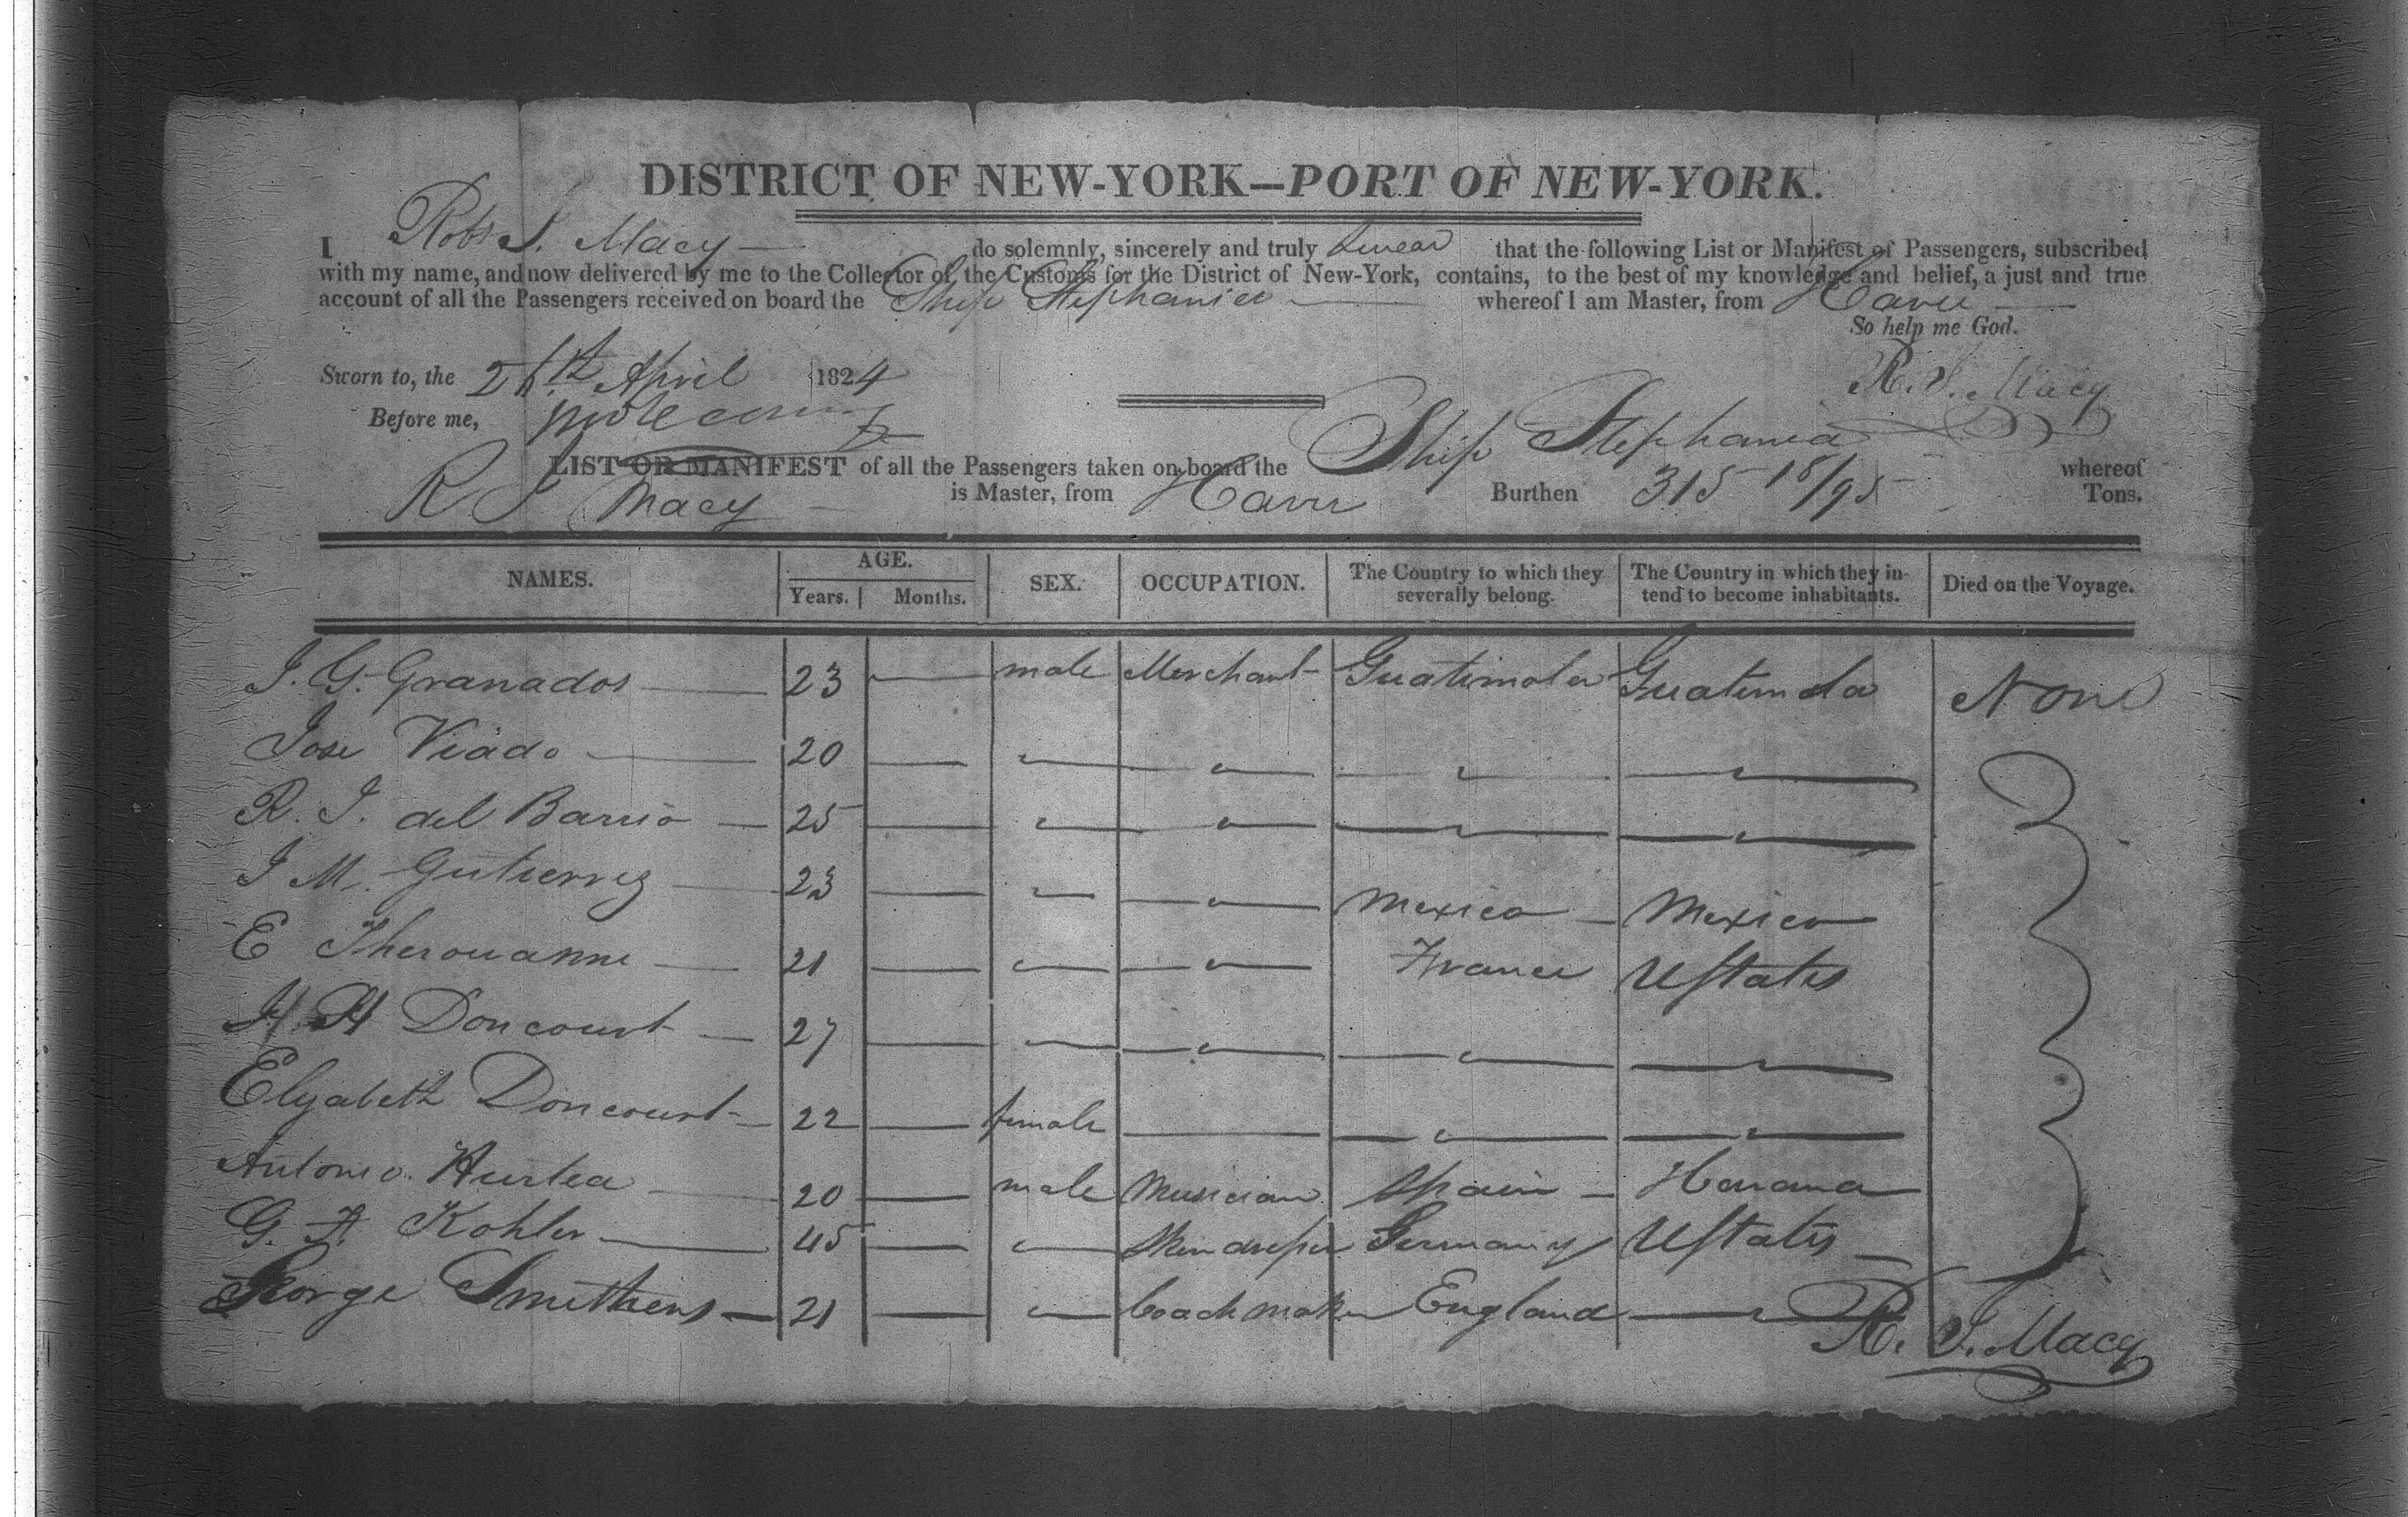 DISTRICT OF NEW-YORK—PORT OF NEW-YORK.
I Robt J. Macy do solemnly, sincerely and truly swear that the following List or Manifest of Passengers, subscribed
with my name, and now delivered by me to the Collector of the Customs for the District of New-York, contains, to the best of my knowledge and belief, a just and true
account of all the Passengers received on board the Ship Stephania whereof I am Master, from Havre
So help me God.
Sworn to, the April 1824 R. J. Macy
Before me,
LIST OR MANIFEST of all the Passengers taken on board the Ship Stephania whereof
R J Macy is Master, from Havre Burthen 315 18/95 Tons.
NAMES. AGE. Years. Months. SEX. OCCUPATION. The Country to which they severally belong. The Country in which they intend to become inhabitants. Died on the Voyage.
J. G. Granados — 23 — male Merchant Guatimala Guatimala None
Jose Viado — 20 — " " " "
R. J. del Barrio — 25 — " " " "
J M. Gutierrez — 23 — " " Mexico Mexico
E Therouanne — 21 — " " France UStates
H Doncourt — 27 — " " " "
Elizabeth Doncourt — 22 — female — " "
Antonio Hurtea — 20 — male Musician Spain Havana
G. A. Kohler — 45 — " Skindresser Germany UStates
George Smithens — 21 — " Coachmaker England "
R. J. Macy